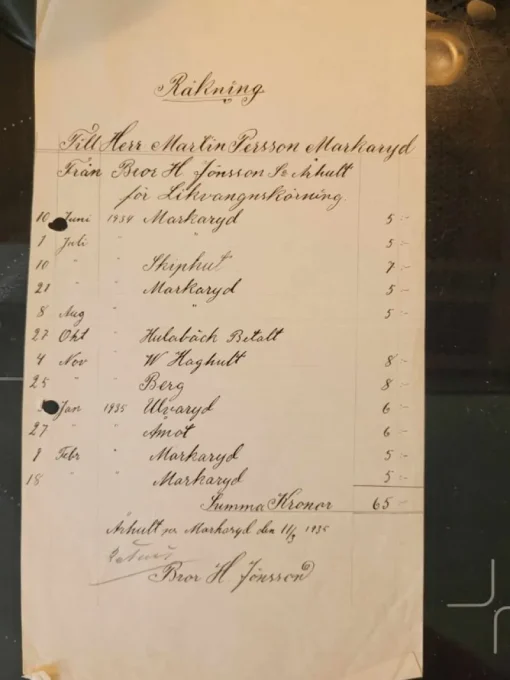 Räkning
Till Herr Martin Persson Markaryd
Från Bror H Jönsson Århult
för Likvangnskörning
10 Juni 1934 Markaryd 5 :-
1 Juli " " 5 :-
10 " " Skiphut 7 :-
21 " " Markaryd 5 :-
8 Aug " " 5 :-
27 Okt " Hulabäck Betalt
4 Nov " W Haghult 8 :-
25 " " Berg 8 :-
Jan 1935 Ulvaryd 6 :-
27 " " Åmot 6 :-
9 Febr " Markaryd 5 :-
18 " " Markaryd 5 :-
Summa Kronor 65 :-
Århult pr Markaryd den 11/3 1935
Bror H Jönsson